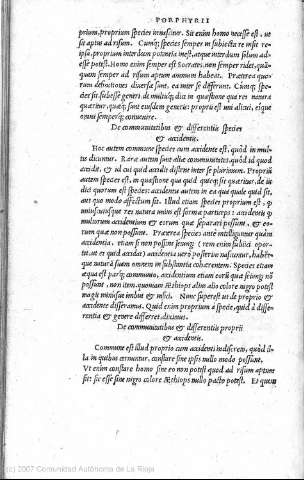 PORPHYRII
prium, proprium species innuitur. Sic enim homo necesse est, ut
sit aptus ad risum. Cumq; species semper in subiecta re insit re-
ipsa, proprium interdum potentia inest, atque interdum solum ad-
esse potest. Homo enim semper est Socrates, non semper ridet, quā-
quam semper ad risum aptum animum habeat. Præterea quo-
rum definitiones diversæ sunt, ea inter se differunt. Cumq; spe-
cies sit subesse generi de multis q; dici in quæstione qua rei natura
quæritur, quæq; sunt eiusdem generis: proprii est uni alicui, eique
omni semperq; convenire.
De communitatibus & differentiis speciei
& accidentis.
Hoc autem commune speciei cum accidente est, quòd in mul-
tis dicuntur. Raræ autem sunt aliæ communitates, quòd id quod
accidit, & id cui quid accidit distent inter se plurimum. Proprium
autem speciei est, in quæstione qua quid quidq; sit quæritur, de iis
dici quorum est species: accidentis autem in ea qua quale quid sit,
aut quo modo affectum sit. Illud etiam speciei proprium est, q̄
unusquisque res natura unius est formæ particeps: accidentis q̄
multorum accidentium & eorum quæ separari possunt, & eo-
rum quæ non possunt. Præterea species ante intelliguntur quàm
accidentia, etiam si non possint seiungi (rem enim subiici opor-
tet, ut ei quid accidat) accidentia verò posterius nascuntur, habēt-
que naturā suam omnem in substantia cohærentem. Species etiam
æqua est participatio, accidentium etiam eorū quæ seiungi nō
possunt, non item, quoniam Æthiops alius alio colore nigro potest
magis minusve imbui & infici. Nunc superest ut de proprio &
accidente differamus. Quid enim proprium à specie, quid à diffe-
rentia & genere differret, diximus.
De communitatibus & differentiis proprii
& accidentis.
Commune est illud proprio cum accidenti indiscreto, quòd il-
la in quibus cernuntur, constare sine ipsis nullo modo possunt.
Ut enim constare homo sine eo non potest quod ad risum aptum
sit: sic esse sine nigro colore Æthiops nullo pacto potest. Et quem
(c) 2007 Comunidad Autónoma de La Rioja